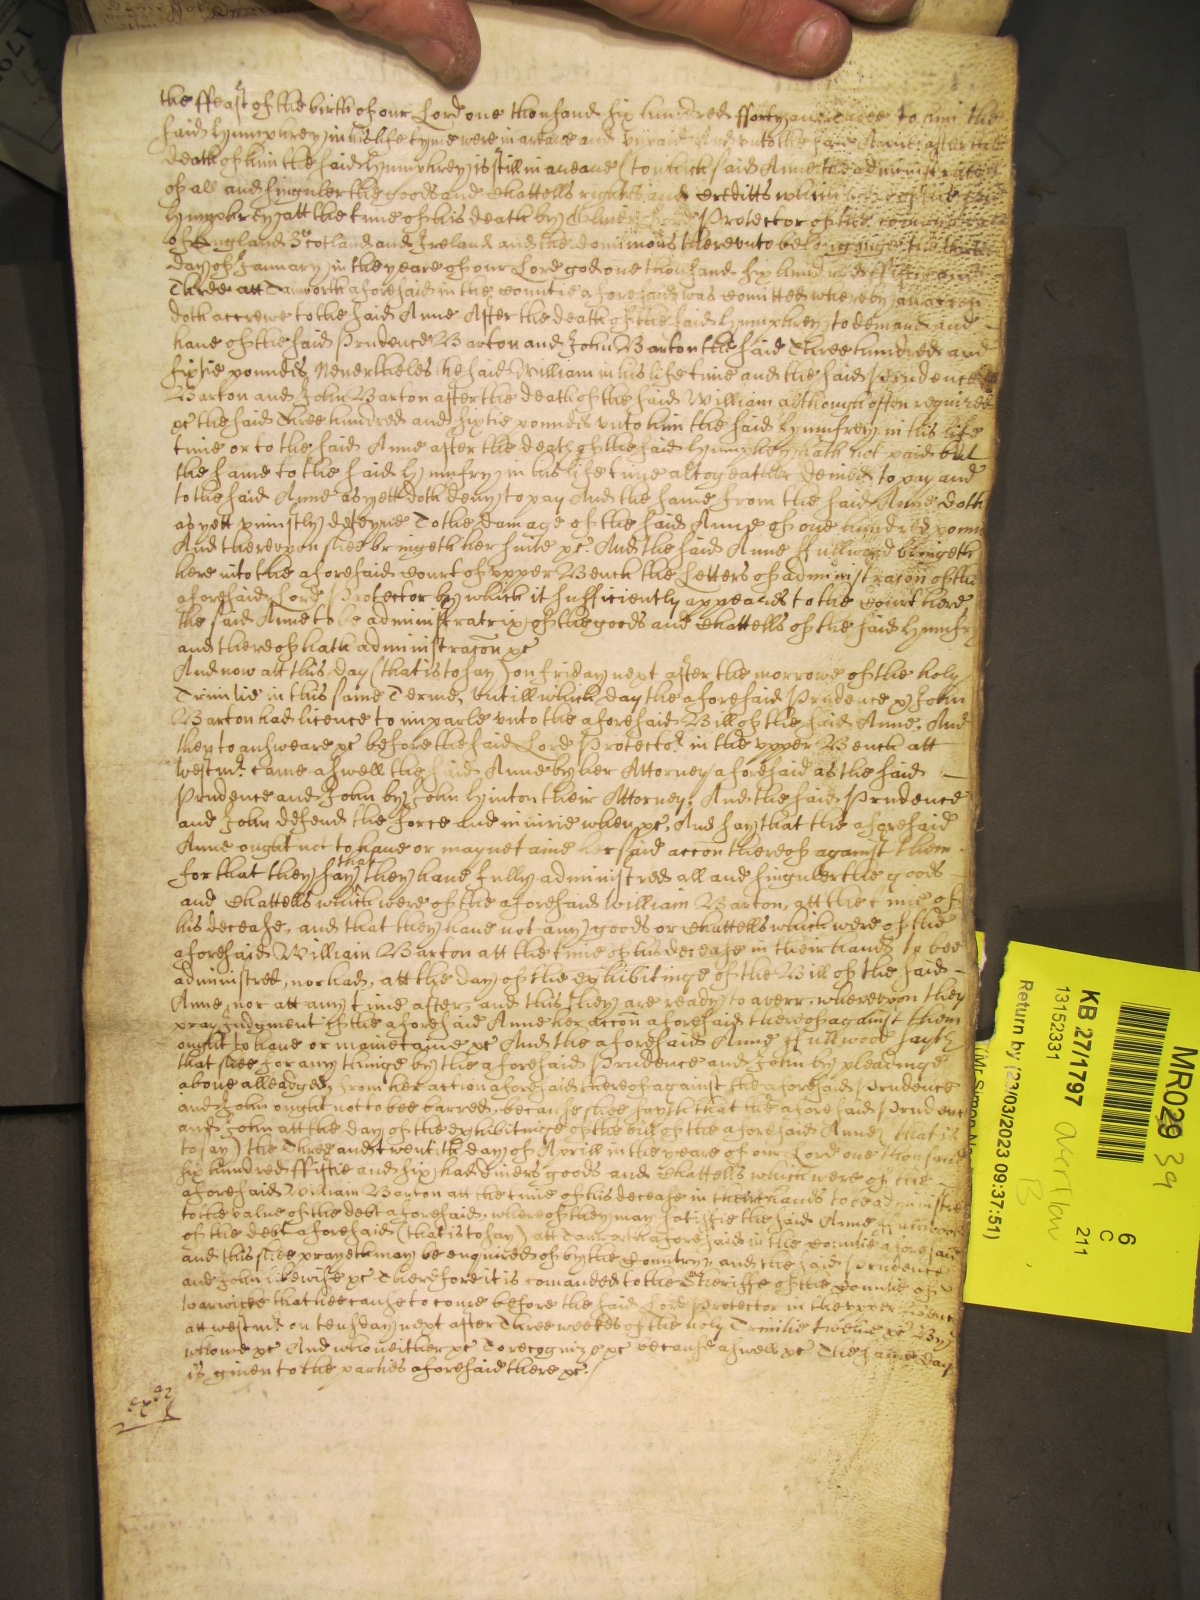 the ffeast of the birth of our Lord one thousand six hundred fforty and three to him the
said Humphrey in his life tyme were in areare and unpaid And unto the said Anne after the
death of him the said Humphrey is still in areare (to which said Anne the administracon
of all and singuler the goods and Chattells rights and Creditts which were of the said
Humphrey att the time of his death by Oliver Lord Protector of the comonwealth
of England Scotland and Ireland and the dominions thereunto belonginge the third
day of January in the yeare of our Lord god one thousand six hundred fiftie and
Three att Tamworth aforesaid in the Countie aforesaid was comitted whereby an accon
doth accrewe to the said Anne After the death of the said Humphrey to demand and
have of the said Prudence Barton and John Barton the said Three hundred and
sixtie pounds Nevertheles he said William in his life time and the said Prudence
Barton and John Barton after the death of the said William although often required
xc the said Three hundred and sixtie pounds unto him the said Humfrey in his life
time or to the said Anne after the death of the said Humphrey hath not paid but
the same to the said Humfry in his life time altogeather denied to pay and
to the said Anne as yett doth deny to pay And the same from the said Anne doth
as yett uniustly deteyne To the damage of the said Anne of one hundred pounds
And thereupon shee bringeth her suite xc. And the said Anne ffullwood bringeth
here into the aforesaid Court of upper Bench the Letters of administracon of the
aforesaid Lord Protector by which it sufficiently appeares to the Court here
the said Anne to be administratrix of the goods and Chattells of the said Humfry
and thereof hath administracon xc
And now att this day (that is to say) on friday next after the morrowe of the holy
Trinitie in this same Terme, untill which day the aforesaid Prudence & John
Barton had licence to imparle unto the aforesaid Bill of the said Anne. And
then to answeare xc before the said Lord Protector in the upper Bench att
Westmr. came aswell the said Anne by her Attorney aforesaid as the said
Prudence and John by John Hinton their Attorney, And the said Prudence
and John defend the force and iniurie when xc, And say that the aforesaid
Anne ought not to have or mayntaine her said accon thereof against them
for that they say that they have fully administred all and singuler the goods
and Chattells which were of the aforesaid William Barton, att the time of
his decease, and that they have not any goods or Chattells which were of the
aforesaid William Barton att the time of his decease in their hands to bee
administred, nor had, att the day of the exhibitinge of the Bill of the said
Anne, nor att any time after, and this they are ready to averr, whereupon they
pray Judgment if the aforesaid Anne her accon aforesaid thereof against them
ought to have or maintaine xc And the aforesaid Anne ffullwood sayth
that shee for any thinge by the aforesaid Prudence and John by pleadinge
above alleadged, from her action aforesaid thereof against the aforesaid Prudence
and John ought not to bee barred, because shee sayth that the aforesaid Prudence
and John att the day of the exhibitinge of the bill of the aforesaid Anne (that is
to say) the Three and twentith day of Aprill in the yeare of our Lord one thousand
six hundred ffiftie and six had divers goods and Chattells which were of the
aforesaid William Barton att the time of his decease in their hands to be administred
to the value of the debt aforesaid, whereof they may satisfie the said Anne
of the debt aforesaid (that is to say) att Tamworth aforesaid in the Countie aforesaid
and this shee prayeth may be enquired of by the Country, and the said Prudence
and John likewise xc Therefore it is comanded to the Sheriffe of the Countie of
Warwicke that hee cause to come before the said Lord Protector in the upper Bench
att westmr on tuesday next after Three weekes of the holy Trinitie twelve xc By
whome xc And who neither xc To recognize xc because aswell xc The same day
is given to the parties aforesaid there xc.
MR029 39
6
C
211
KB 27/1797
13152331
Return by (23/03/2023 09:37:51)